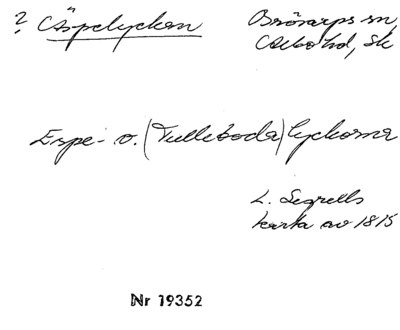 ? Äspelyckan Brösarps sn,
Albo hd, Sk
Espe- o. (Tulleboda) lyckorna
L. Segrells
karta av 1815
Nr 19352